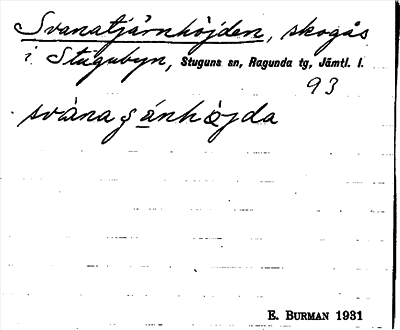 Svanatjärnhöjden, skogås
i Stugubyn, Stuguns sn, Ragunda tg, Jämtl. l.
93
svànaʂ ánhòjda
E. BURMAN 1931